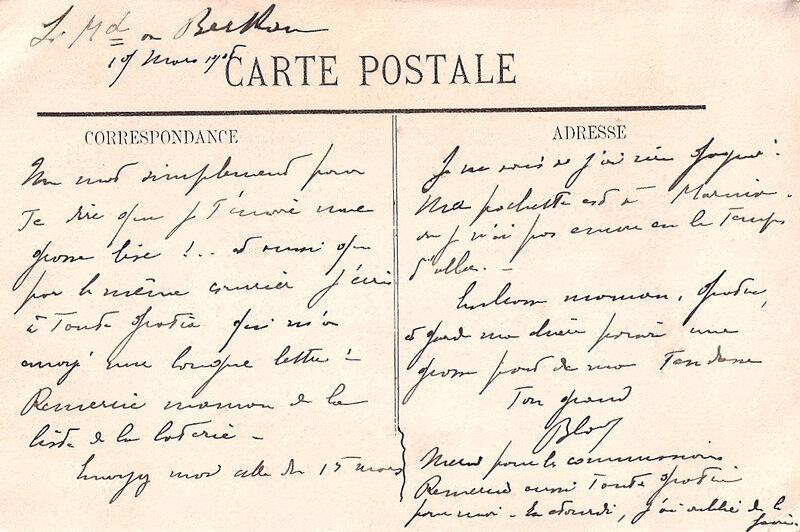 Berkan
Mars
CARTE POSTALE
CORRESPONDANCE
Un mot simplement pour
Te dire que j T'envoie une
grosse bise !.. et aussi que
par le même courrier j'écris
à Tante qui m'a
envoyé une longue lettre !
Remercie maman de la
liste de la loterie -
Envoyez moi celle du 15 mars
ADRESSE
Je ne sais si j'ai rien gagné !
Ma pochette est à Marnia.
ou j n'ai pas encore eu le Temps
d'aller. -
Embrasse maman,
et garde ma chérie pour une
grosse part de ma Tendresse
Ton grand
Merci pour les commissions
Remercie aussi Tante
pour moi - j'ai oublié de le